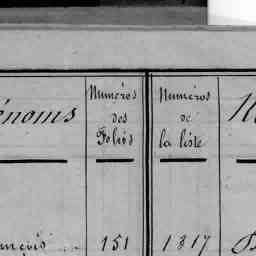 énoms
Numéros
des
Folios
Numéros
de
la liste
151
1317